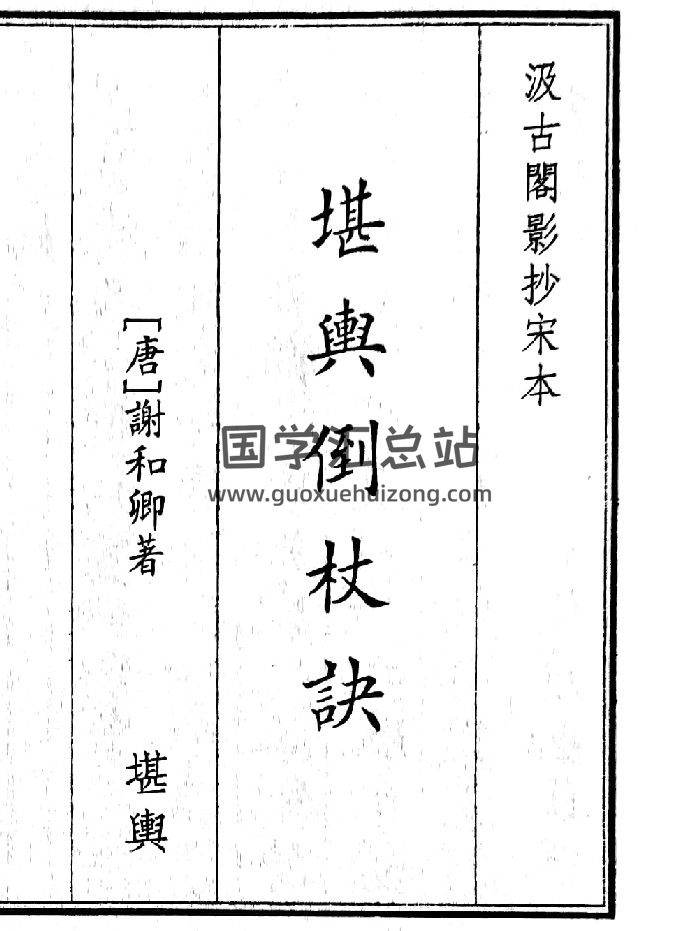 汲古閣影抄宋本
堪輿倒杖訣
[唐]謝和卿著
堪輿
国学汇总站
www.guoxuehuizong.com